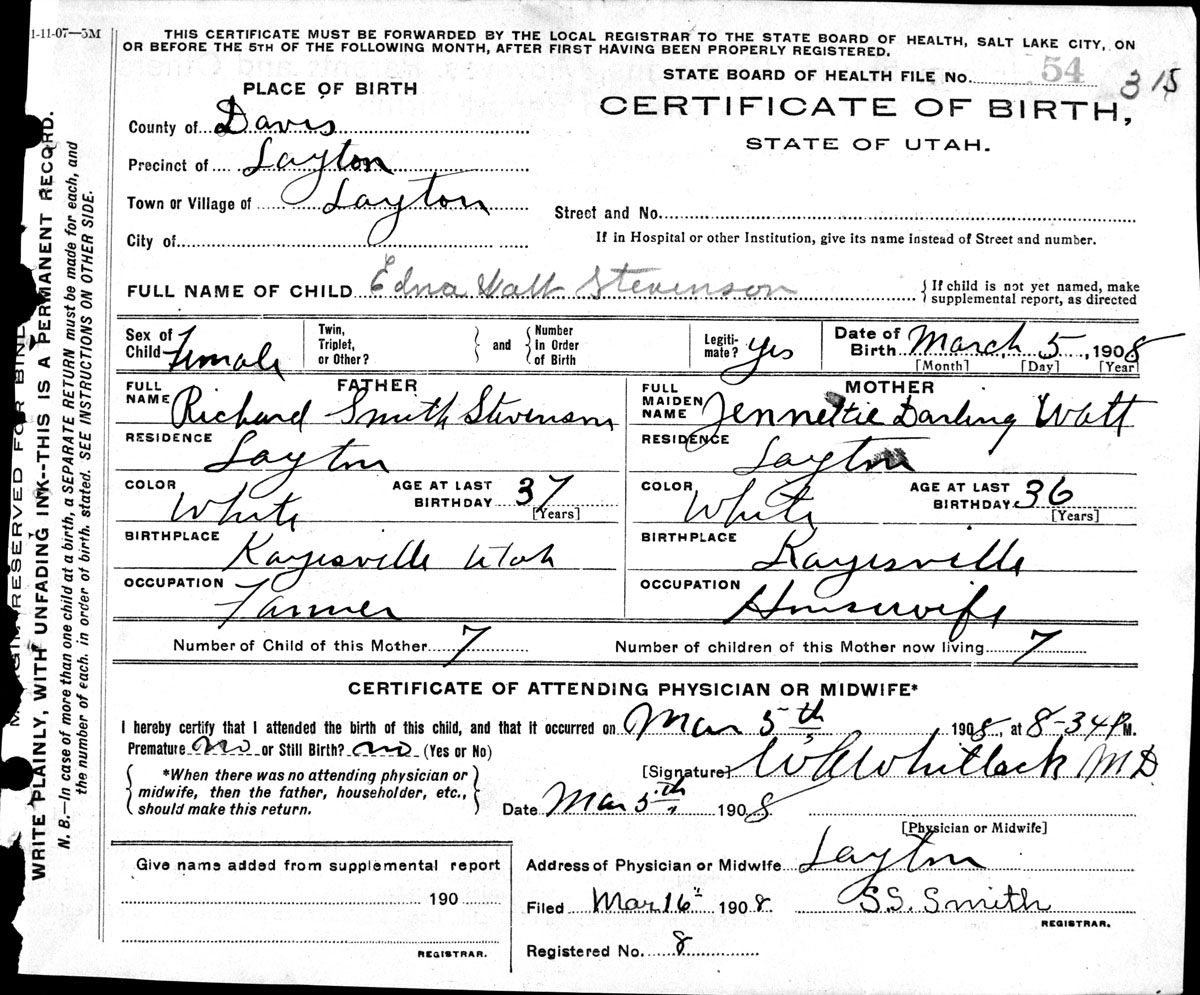 1-11-07—5M
THIS CERTIFICATE MUST BE FORWARDED BY THE LOCAL REGISTRAR TO THE STATE BOARD OF HEALTH, SALT LAKE CITY, ON
OR BEFORE THE 5TH OF THE FOLLOWING MONTH, AFTER FIRST HAVING BEEN PROPERLY REGISTERED.
STATE BOARD OF HEALTH FILE No. 54 315
PLACE OF BIRTH
CERTIFICATE OF BIRTH,
STATE OF UTAH.
County of Davis
Precinct of Layton
Town or Village of Layton
Street and No.
City of
If in Hospital or other Institution, give its name instead of Street and number.
FULL NAME OF CHILD Edna Watt Stevenson
{ If child is not yet named, make
supplemental report, as directed
Sex of
Child Female
Twin,
Triplet,
or Other?
} and {
Number
In Order
of Birth
Legiti-
mate? yes
Date of
Birth March 5, 1908
[Month] [Day] [Year]
FATHER
FULL
NAME Richard Smith Stevenson
RESIDENCE
Layton
COLOR
White
AGE AT LAST
BIRTHDAY 37
[Years]
BIRTHPLACE
Kaysville Utah
OCCUPATION
Farmer
MOTHER
FULL
MAIDEN
NAME Jennettie Darling Watt
RESIDENCE
Layton
COLOR
White
AGE AT LAST
BIRTHDAY 36
[Years]
BIRTHPLACE
Kaysville
OCCUPATION
Housewife
Number of Child of this Mother 7
Number of children of this Mother now living 7
CERTIFICATE OF ATTENDING PHYSICIAN OR MIDWIFE*
I hereby certify that I attended the birth of this child, and that it occurred on Mar 5th, 1908, at 8-34 P M.
Premature no or Still Birth? no (Yes or No)
{ *When there was no attending physician or
midwife, then the father, householder, etc.,
should make this return. }
[Signature] Whitlock MD
Date Mar 5th, 1908
[Physician or Midwife]
Give name added from supplemental report
190
REGISTRAR.
Address of Physician or Midwife Layton
Filed Mar 16th 1908. S.S. Smith
REGISTRAR.
Registered No. 8
RESERVED FOR BIND
WRITE PLAINLY, WITH UNFADING INK--THIS IS A PERMANENT RECORD.
N. B.—In case of more than one child at a birth, a SEPARATE RETURN must be made for each, and
the number of each, in order of birth, stated. SEE INSTRUCTIONS ON OTHER SIDE.